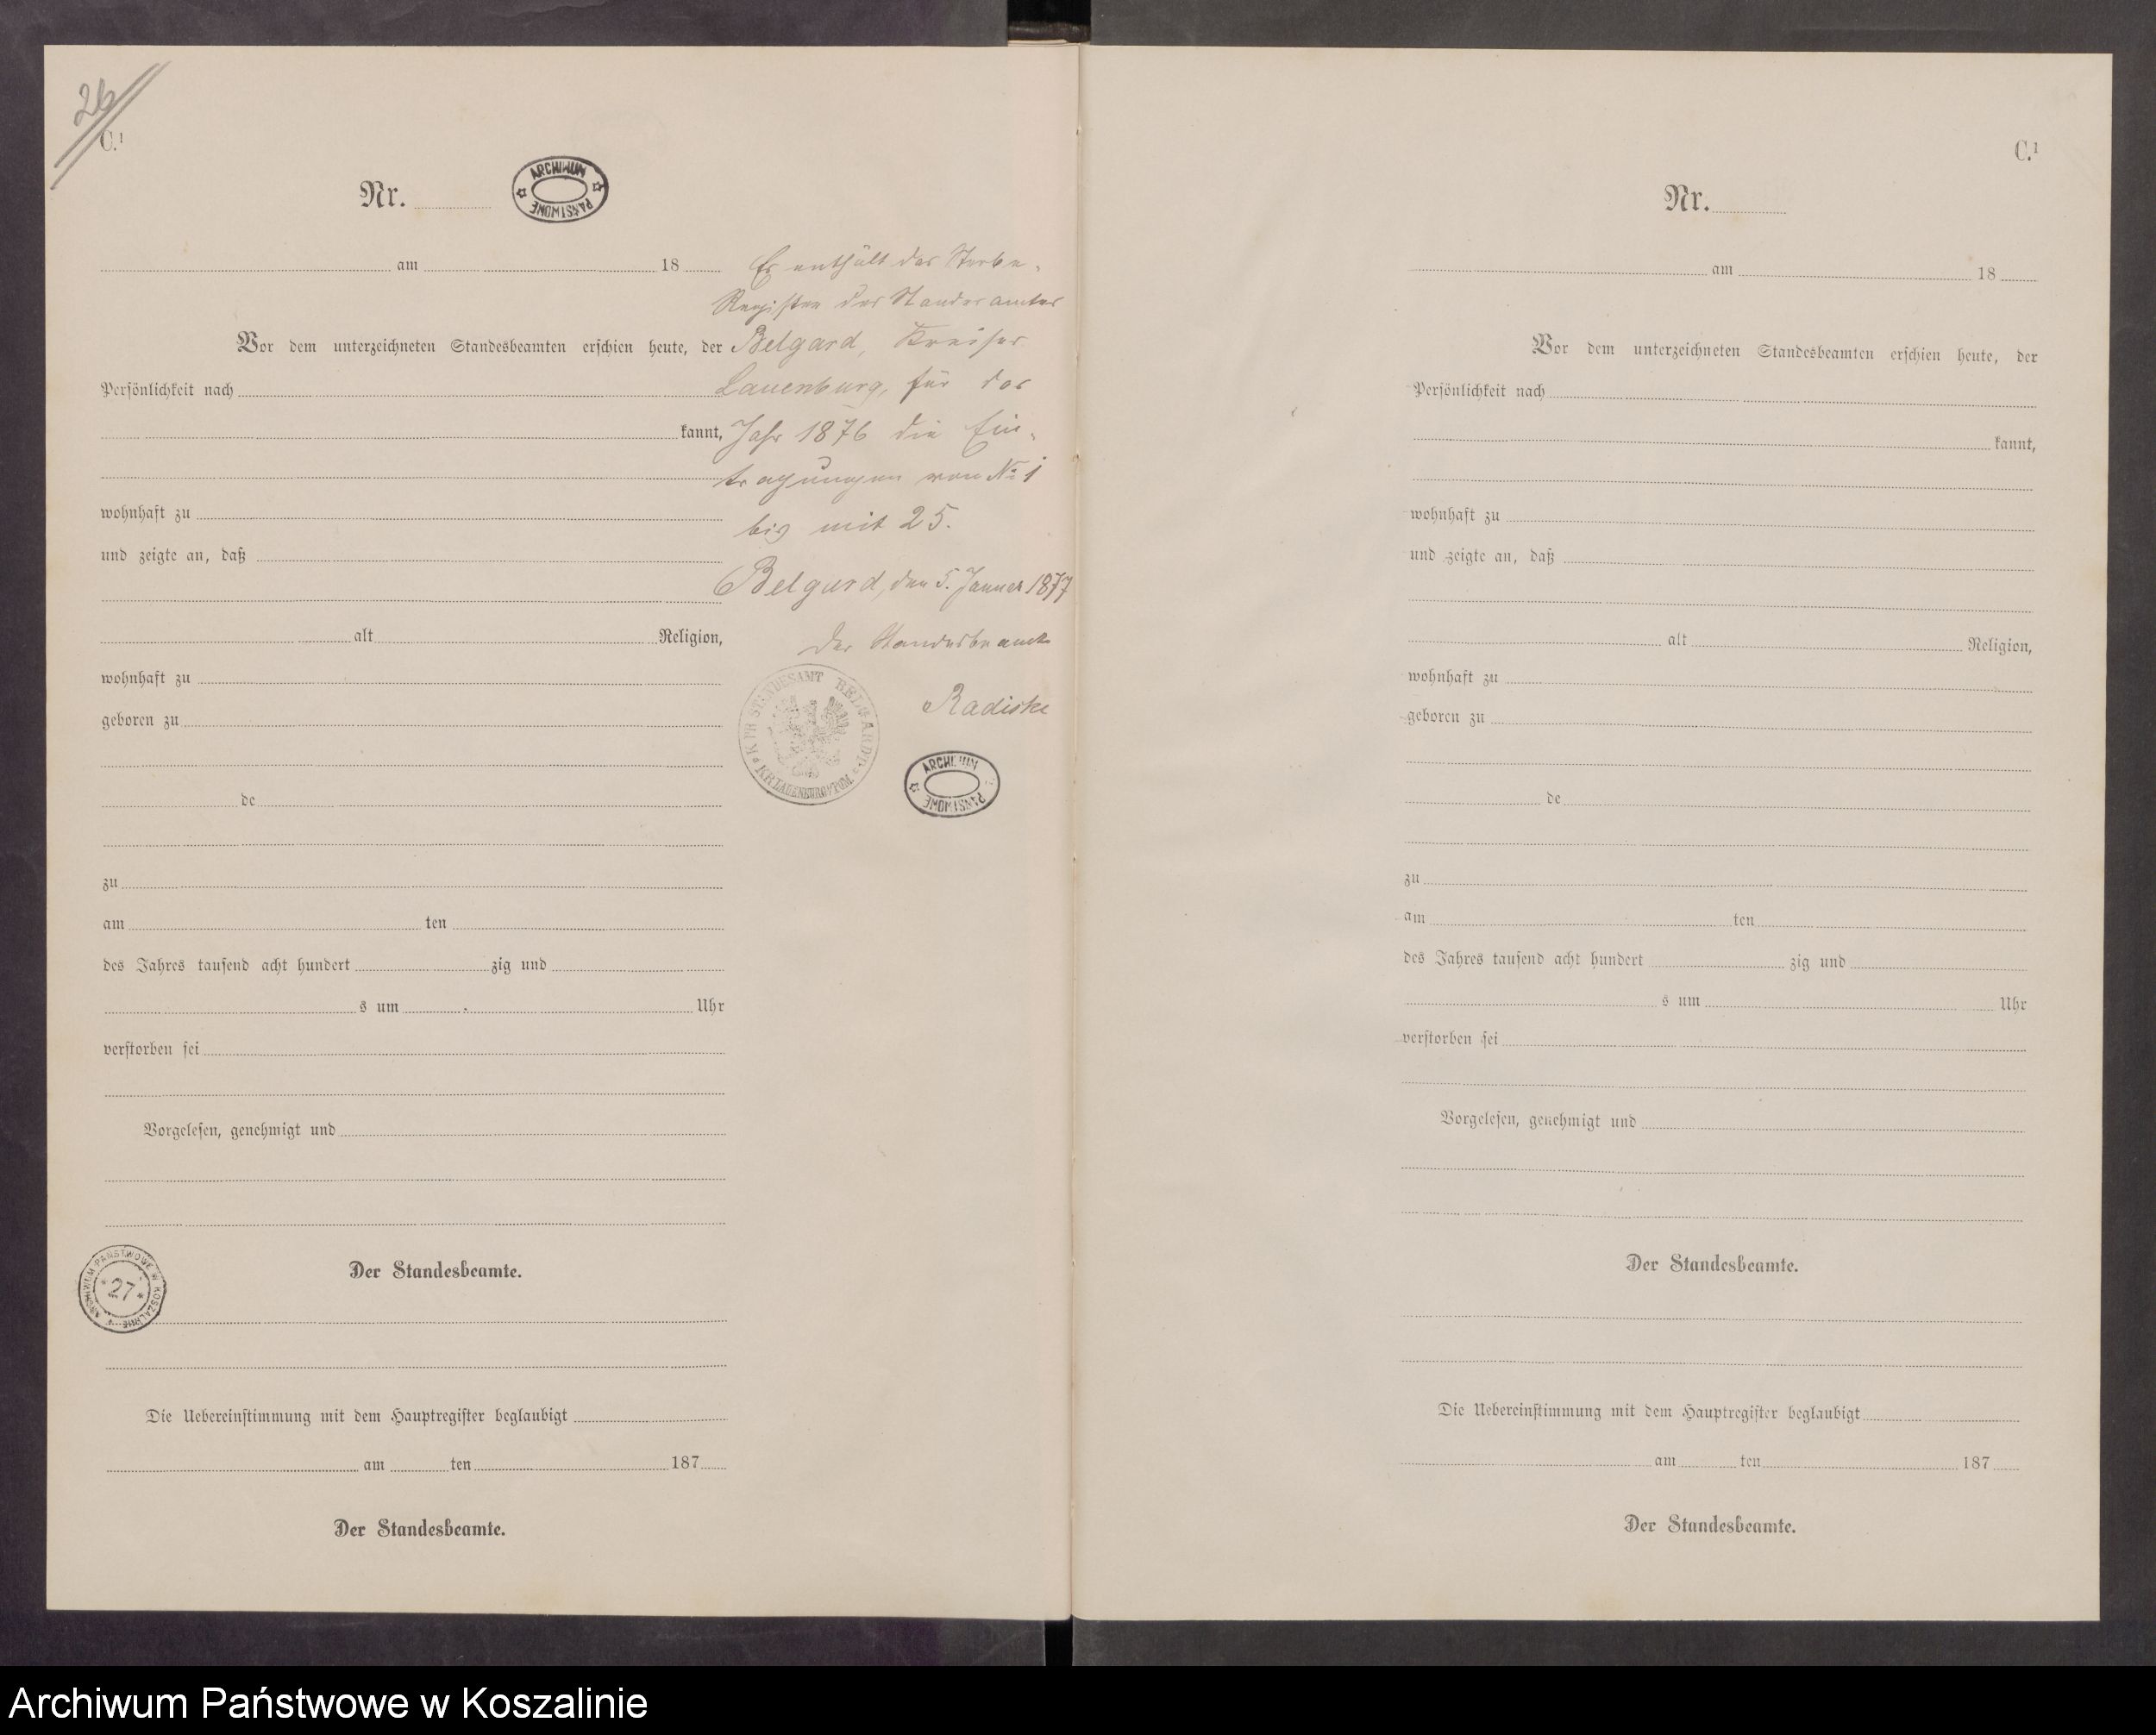 26
C.¹
Nr.
ARCHIWUM PAŃSTWOWE
am 18
Vor dem unterzeichneten Standesbeamten erschien heute, der
Persönlichkeit nach
kannt,
wohnhaft zu
und zeigte an, daß
alt Religion,
wohnhaft zu
geboren zu
de
zu
am ten
des Jahres tausend acht hundert zig und
s um Uhr
verstorben sei
Vorgelesen, genehmigt und
Der Standesbeamte.
ARCHIWUM PAŃSTWOWE W KOSZALINIE
27
Die Uebereinstimmung mit dem Hauptregister beglaubigt
am ten 187
Der Standesbeamte.
Es enthält das Sterbe-
Register des Standesamtes
Belgard, Kreises
Lauenburg, für das
Jahr 1876 die Ein-
tragungen von No 1
bis mit 25.
Belgard, den 5. Januar 1877
Der Standesbeamte
Radiske
K. PR. STANDESAMT BELGARD
KR. LAUENBURG I/POM.
ARCHIWUM PAŃSTWOWE
C.¹
Nr.
am 18
Vor dem unterzeichneten Standesbeamten erschien heute, der
Persönlichkeit nach
kannt,
wohnhaft zu
und zeigte an, daß
alt Religion,
wohnhaft zu
geboren zu
de
zu
am ten
des Jahres tausend acht hundert zig und
s um Uhr
verstorben sei
Vorgelesen, genehmigt und
Der Standesbeamte.
Die Uebereinstimmung mit dem Hauptregister beglaubigt
am ten 187
Der Standesbeamte.
Archiwum Państwowe w Koszalinie